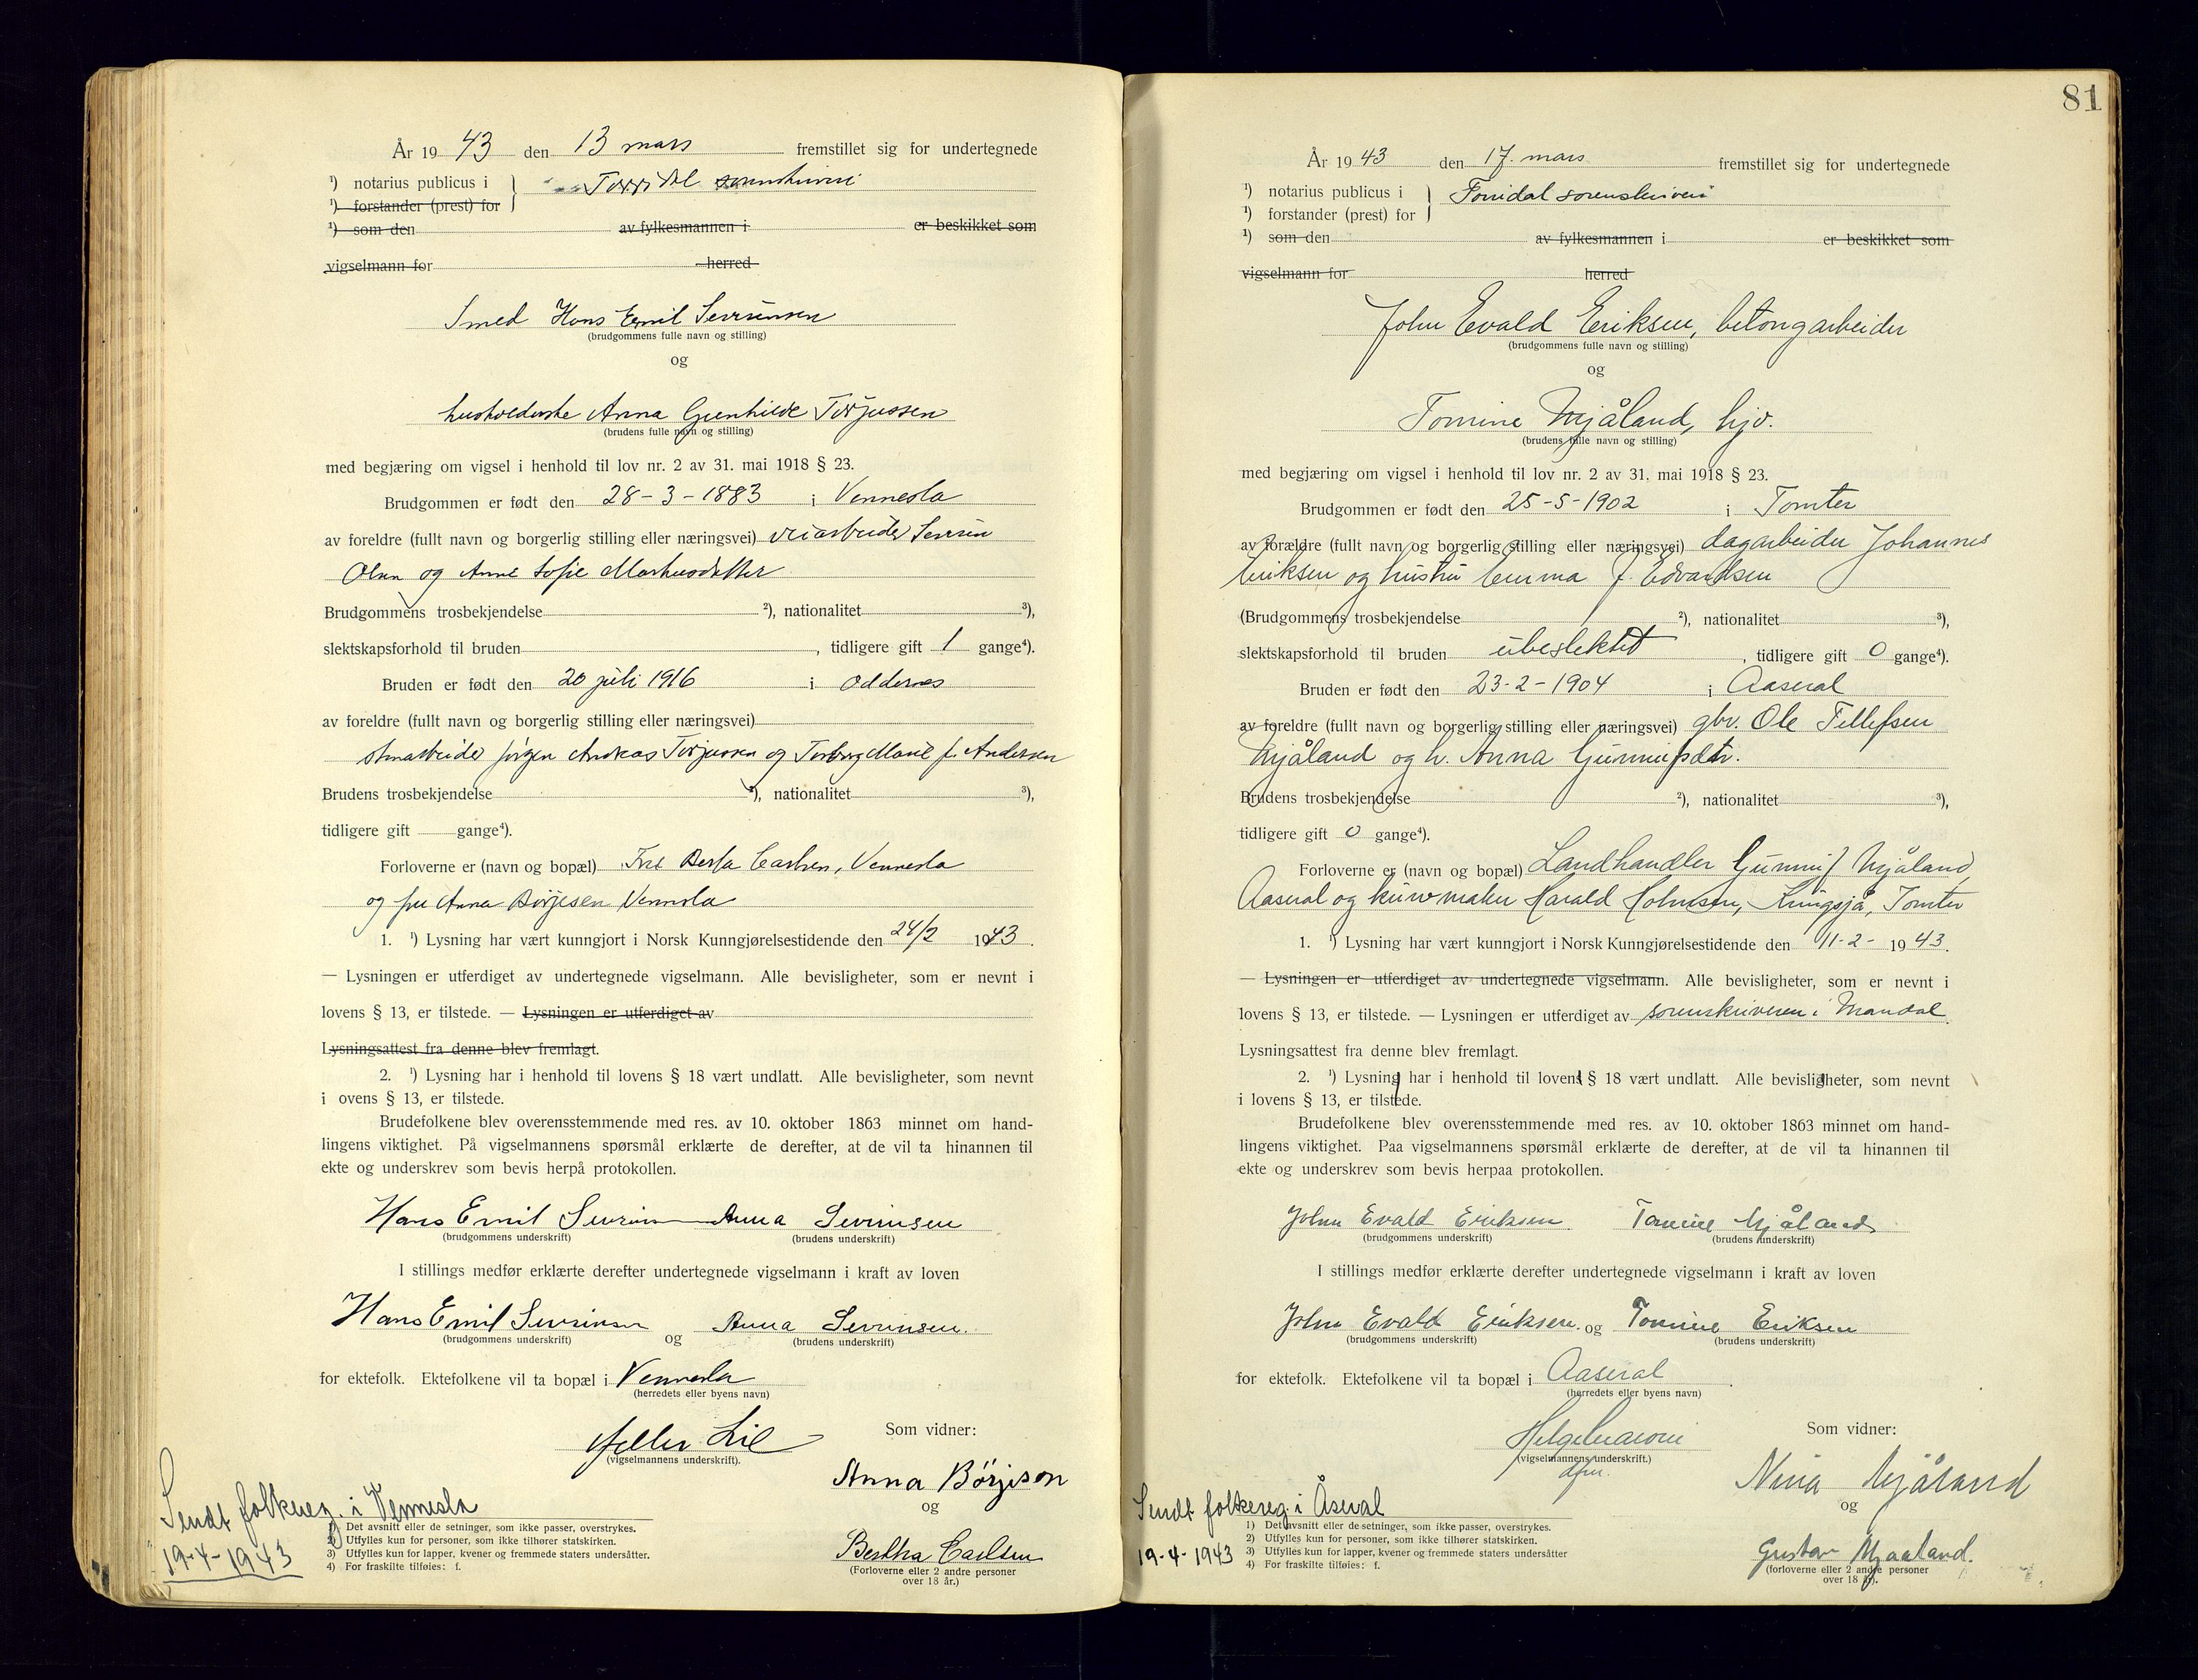 År 1943 den 13 mars fremstillet sig for undertegnede
¹) notarius publicus i Torridal sorenskriveri
¹) forstander (prest) for
¹) som den av fylkesmannen i er beskikket som
vigselmann for herred
Smed Hans Emil Sevrinsen
(brudgommens fulle navn og stilling)
og
husholderske Anna Gunhilde Torjussen
(brudens fulle navn og stilling)
med begjæring om vigsel i henhold til lov nr. 2 av 31. mai 1918 § 23.
Brudgommen er født den 28-3-1883 i Vennesla
av foreldre (fullt navn og borgerlig stilling eller næringsvei) veiarbeider Sevrin
Olsen og Anne Sofie Markusdatter
Brudgommens trosbekjendelse ²), nationalitet ³),
slektskapsforhold til bruden , tidligere gift 1 gange⁴).
Bruden er født den 20 juli 1916 i Oddernes
av foreldre (fullt navn og borgerlig stilling eller næringsvei)
Jørgen Andreas Torjussen og Torborg Marie f. Andersen
Brudens trosbekjendelse ²), nationalitet ³),
tidligere gift gange⁴).
Forloverne er (navn og bopæl) Berta Carlsen, Vennesla
og fru Anna Børjesen Vennesla
1. ¹) Lysning har vært kunngjort i Norsk Kunngjørelsestidende den 24/2 1943.
— Lysningen er utferdiget av undertegnede vigselmann. Alle bevisligheter, som er nevnt i
lovens § 13, er tilstede. — Lysningen er utferdiget av
Lysningsattest fra denne blev fremlagt.
2. ¹) Lysning har i henhold til lovens § 18 vært undlatt. Alle bevisligheter, som nevnt
i ovens § 13, er tilstede.
Brudefolkene blev overensstemmende med res. av 10. oktober 1863 minnet om hand-
lingens viktighet. På vigselmannens spørsmål erklærte de derefter, at de vil ta hinannen til
ekte og underskrev som bevis herpå protokollen.
Hans Emil Sevrinsen Anna Sevrinsen
(brudgommens underskrift) (brudens underskrift)
I stillings medfør erklærte derefter undertegnede vigselmann i kraft av loven
Hans Emil Sevrinsen og Anna Sevrinsen.
(brudgommens underskrift) (brudens underskrift)
for ektefolk. Ektefolkene vil ta bopæl i Vennesla
(herredets eller byens navn)
(vigselmannens underskrift).
Som vidner:
Anna Börjeson
og
Bertha Carlsen
(Forloverne eller 2 andre personer
over 18 år.)
Sendt folkereg. i Vennesla
19-4-1943
1) Det avsnitt eller de setninger, som ikke passer, overstrykes.
2) Utfylles kun for personer, som ikke tilhører statskirken.
3) Utfylles kun for lapper, kvener og fremmede staters undersåtter.
4) For fraskilte tilføies: f.
81
År 1943 den 17. mars fremstillet sig for undertegnede
¹) notarius publicus i Torridal sorenskriveri
¹) forstander (prest) for
¹) som den av fylkesmannen i er beskikket som
vigselmann for herred
John Evald Eriksen, betongarbeider
(brudgommens fulle navn og stilling)
og
Tomine Mjåland, hjv.
(brudens fulle navn og stilling)
med begjæring om vigsel i henhold til lov nr. 2 av 31. mai 1918 § 23.
Brudgommen er født den 25-5-1902 i Tomter
av forældre (fullt navn og borgerlig stilling eller næringsvei) dagarbeider Johannes
Eriksen og hustru Emma f. Edvardsen
(Brudgommens trosbekjendelse ²), nationalitet ³),
slektskapsforhold til bruden ubeslektet , tidligere gift 0 gange⁴).
Bruden er født den 23-2-1904 i Aaseral
av foreldre (fullt navn og borgerlig stilling eller næringsvei) gbr. Ole Tellefsen
Mjåland og h. Anna Gunnufsdtr.
Brudens trosbekjendelse ²), nationalitet ³),
tidligere gift 0 gange⁴).
Forloverne er (navn og bopæl) Landhandler Gunnuf Mjåland,
Aaseral og kurvmaker Harald Holmsen, Tomter
1. ¹) Lysning har vært kunngjort i Norsk Kunngjørelsestidende den 11-2- 1943.
— Lysningen er utferdiget av undertegnede vigselmann. Alle bevisligheter, som er nevnt i
lovens § 13, er tilstede. — Lysningen er utferdiget av sorenskriveren i Mandal
Lysningsattest fra denne blev fremlagt.
2. ¹) Lysning har i henhold til lovens § 18 vært undlatt. Alle bevisligheter, som nevnt
i lovens § 13, er tilstede.
Brudefolkene blev overensstemmende med res. av 10. oktober 1863 minnet om hand-
lingens viktighet. Paa vigselmannens spørsmål erklærte de derefter, at de vil ta hinannen til
ekte og underskrev som bevis herpaa protokollen.
John Evald Eriksen Tomine Mjåland
(brudgommens underskrift) (brudens underskrift)
I stillings medfør erklærte derefter undertegnede vigselmann i kraft av loven
John Evald Eriksen og Tomine Eriksen
(brudgommens underskrift) (brudens underskrift)
for ektefolk. Ektefolkene vil ta bopæl i Aaseral
(herredets eller byens navn)
(vigselmannens underskrift.)
dfm.
Som vidner:
Nina Mjåland
og
Gustav Mjaaland.
(forloverne eller 2 andre personer
over 18 år).
Sendt folkereg. i Åseral
19-4-1943
1) Det avsnitt eller de setninger, som ikke passer, overstrykes.
2) Utfylles kun for personer, som ikke tilhører statskirken.
3) Utfylles kun for lapper, kvener og fremmede staters undersåtter
4) For fraskilte tilføies: f.